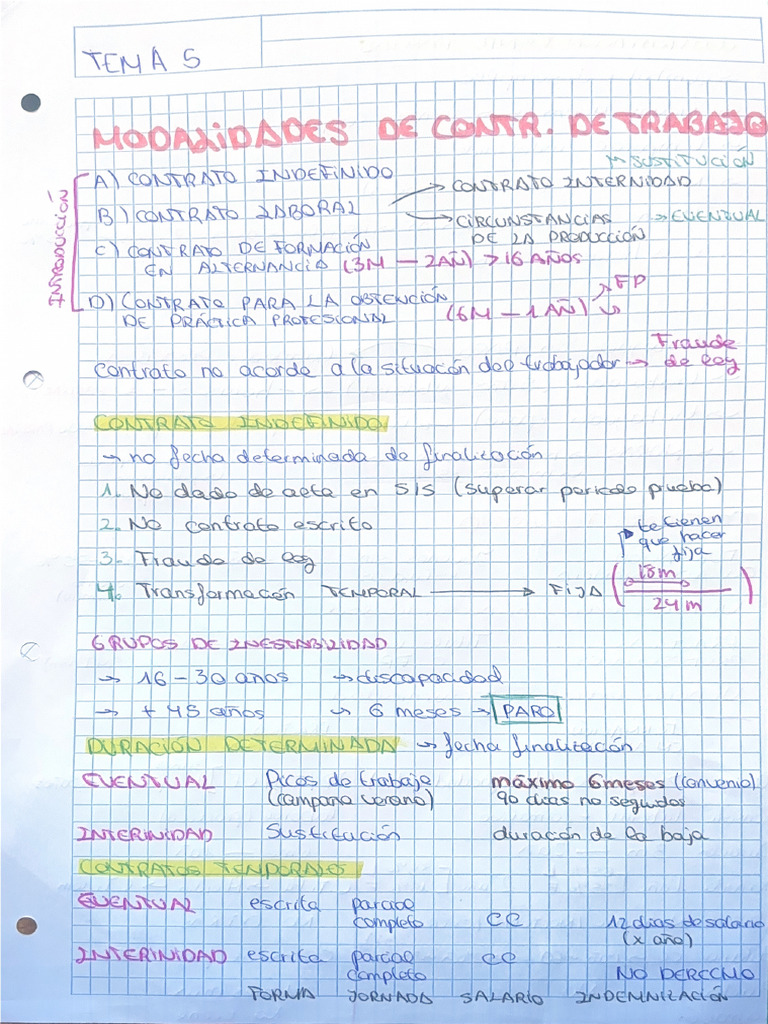 TEMA 5
MODALIDADES DE CONTR. DE TRABAJO
INTRODUCCIÓN
A) CONTRATO INDEFINIDO
B) CONTRATO LABORAL
→ CONTRATO INTERNIDAD → SUSTITUCIÓN
→ CIRCUNSTANCIAS DE LA PRODUCCIÓN → EVENTUAL
C) CONTRATO DE FORMACIÓN
EN ALTERNANCIA (3M — 2AÑ) > 16 AÑOS
D) CONTRATO PARA LA OBTENCIÓN
DE PRÁCTICA PROFESIONAL (6M — 1AÑ) → FP
contrato no acorde a la situación del trabajador → Fraude de ley
CONTRATO INDEFINIDO
→ no fecha determinada de finalización
1. No dado de acta en S/S (superar periodo prueba)
2. No contrato escrito
3. Fraude de ley
4. Transformación TEMPORAL → FIJA (18m / 24m)
te tienen que hacer fija
GRUPOS DE INESTABILIDAD
→ 16 - 30 años → discapacidad
→ + 45 años → 6 meses → PARO
DURACIÓN DETERMINADA → fecha finalización
EVENTUAL Picos de trabajo máximo 6 meses (convenio)
(campaña verano) 90 días no seguidos
INTERINIDAD Sustitución duración de la baja
CONTRATOS TEMPORALES
EVENTUAL escrita parcial
completo CC 12 días de salario
(x año)
INTERINIDAD escrita parcial CC
completo NO DERECHO
FORMA JORNADA SALARIO INDEMNIZACIÓN